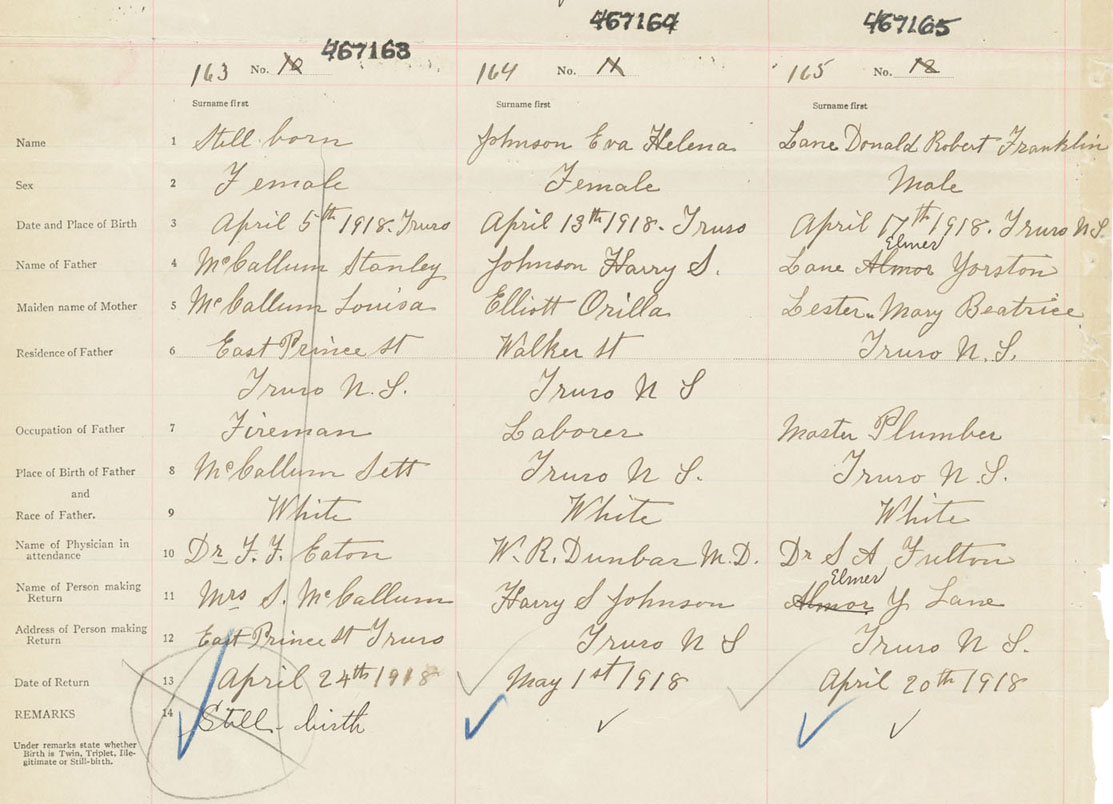 467163 467164 467165
163 No. 10 164 No. 11 165 No. 12
Surname first Surname first Surname first
Name 1 Still born Johnson Eva Helena Lane Donald Robert Franklin
Sex 2 Female Female Male
Date and Place of Birth 3 April 5th 1918. Truro April 13th 1918. Truro April 17th 1918. Truro N.S.
Elmer
Name of Father 4 McCallum Stanley Johnson Harry S. Lane Almor Yorston
Maiden name of Mother 5 McCallum Louisa Elliott Orilla Lester Mary Beatrice
Residence of Father 6 East Prince St Walker St Truro N.S.
Truro N.S. Truro N S
Occupation of Father 7 Fireman Laborer Master Plumber
Place of Birth of Father 8 McCallum Sett Truro N S. Truro N.S.
and
Race of Father. 9 White White White
Name of Physician in
attendance 10 Dr F. F. Eaton W. R. Dunbar M.D. Dr S A Fulton
Elmer
Name of Person making
Return 11 Mrs S. McCallum Harry S Johnson Almor Y Lane
Address of Person making
Return 12 East Prince St Truro Truro N S Truro N S.
Date of Return 13 April 24th 1918 May 1st 1918 April 20th 1918
REMARKS 14 Still-birth
Under remarks state whether
Birth is Twin, Triplet, Ille-
gitimate or Still-birth.